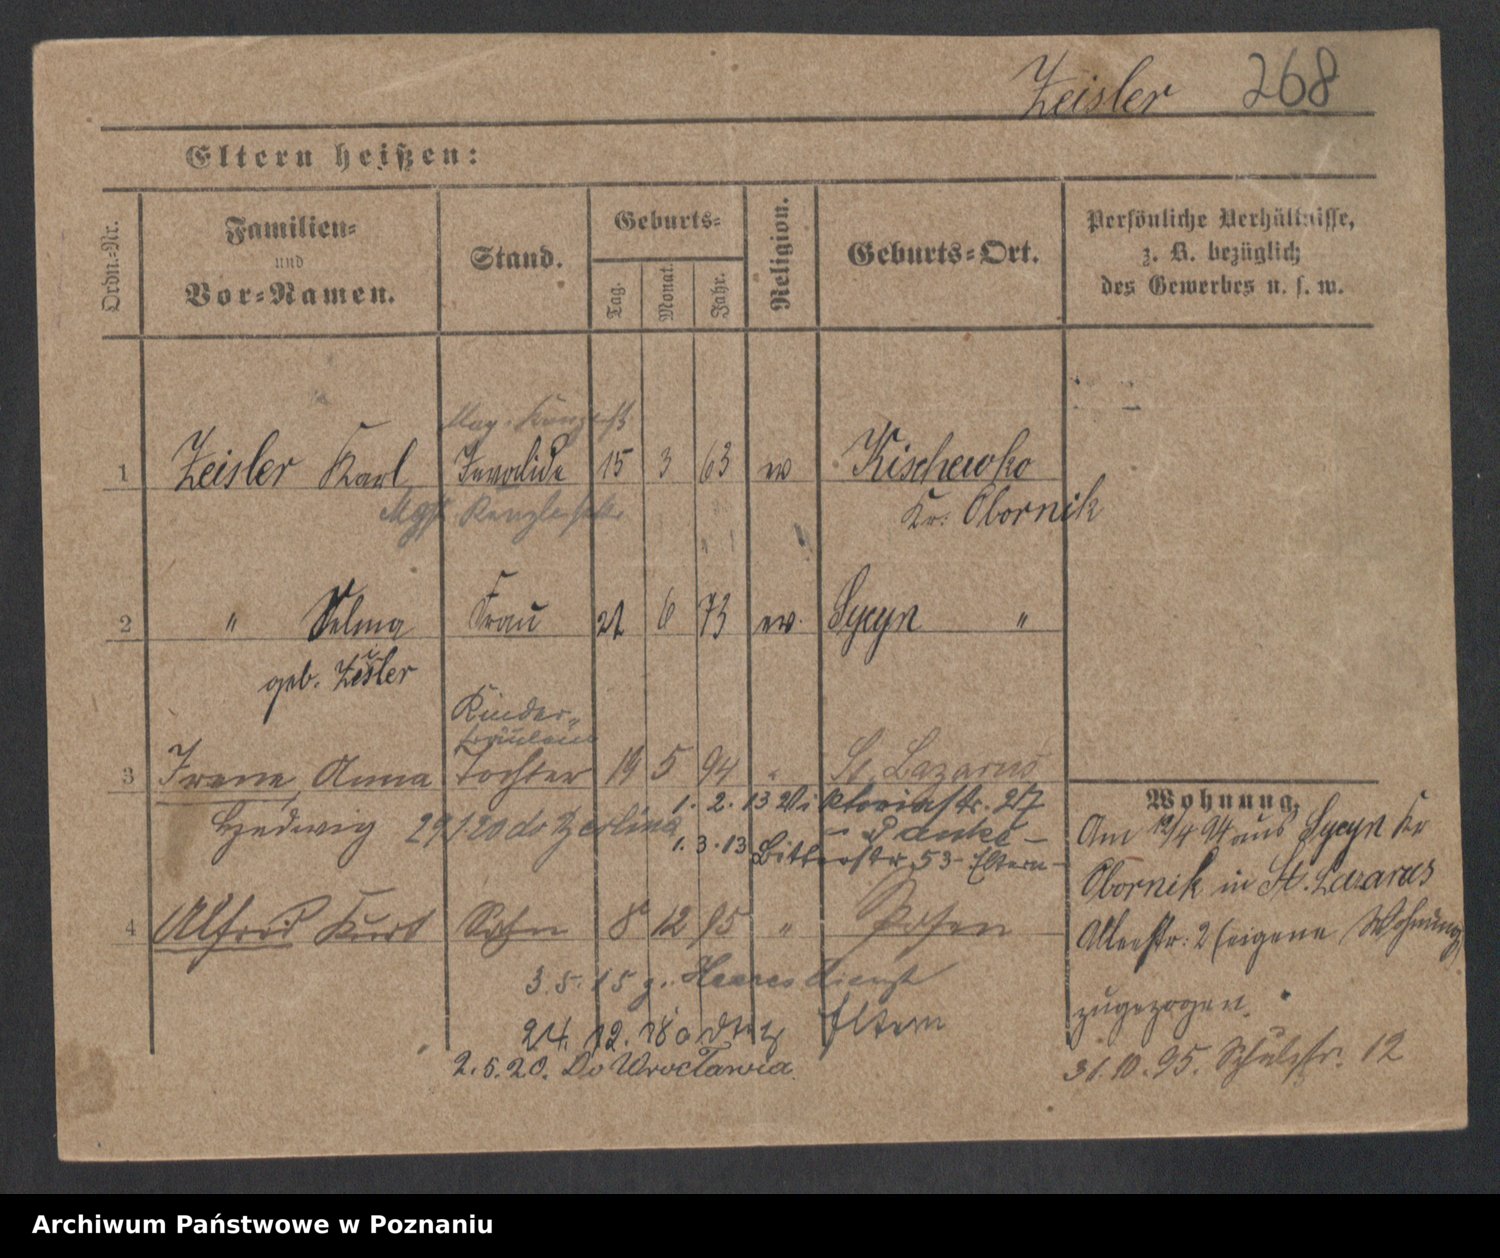 Zeisler 268
Eltern heißen:
Ordn.-Nr.
Familien-
und
Vor-Namen.
Stand.
Geburts-
Tag.
Monat.
Jahr.
Religion.
Geburts-Ort.
Persönliche Verhältnisse,
z. B. bezüglich
des Gewerbes u. s. w.
1 Zeisler Karl Invalide 15 3 63 ev Kischewko
Kr. Obornik
2 " Selma Frau 21 6 73 ev. Sycyn "
geb. Zeisler
Kinder-
fräulein
3 Irene Anna Tochter 19 5 94 " St. Lazarus
1. 2. 13 Viktoriastr. 27
Hedwig 29/1 20 do Berlina
1. 3. 13 Bitterstr. 53 - Eltern -
4 Alfred Kurt Sohn 8 12 95 " Posen
3. 5. 15 z. Heeresdienst
24. 12. 18 Eltern
2. 5. 20. Do Wrocławia.
Wohnung.
Am 12/4 94 aus Sycyn Kr
Obornik in St. Lazarus
Alleestr. 2 (eigene Wohnung
zugezogen.
31. 10. 95. Schulstr. 12
Archiwum Państwowe w Poznaniu